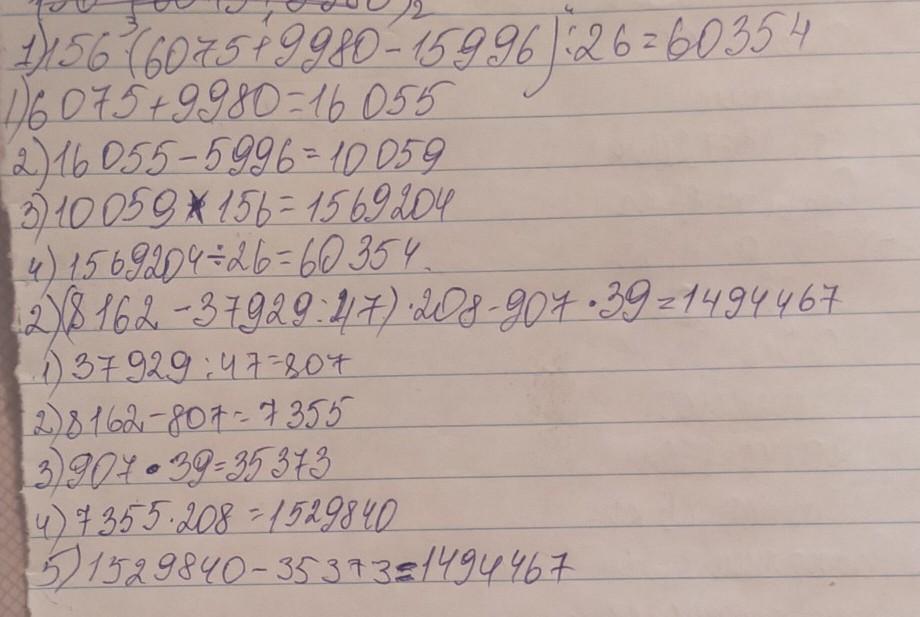 1) 156 · (6075 + 9980 - 15996) : 26 = 60354
1) 6075 + 9980 = 16 055
2) 16 055 - 5996 = 10 059
3) 10 059 x 156 = 1569204
4) 1569204 ÷ 26 = 60354.
2) (8162 - 37929 : 47) · 208 - 907 · 39 = 1494467
1) 37929 : 47 = 807
2) 8162 - 807 = 7355
3) 907 · 39 = 35373
4) 7355 · 208 = 1529840
5) 1529840 - 35373 = 1494467